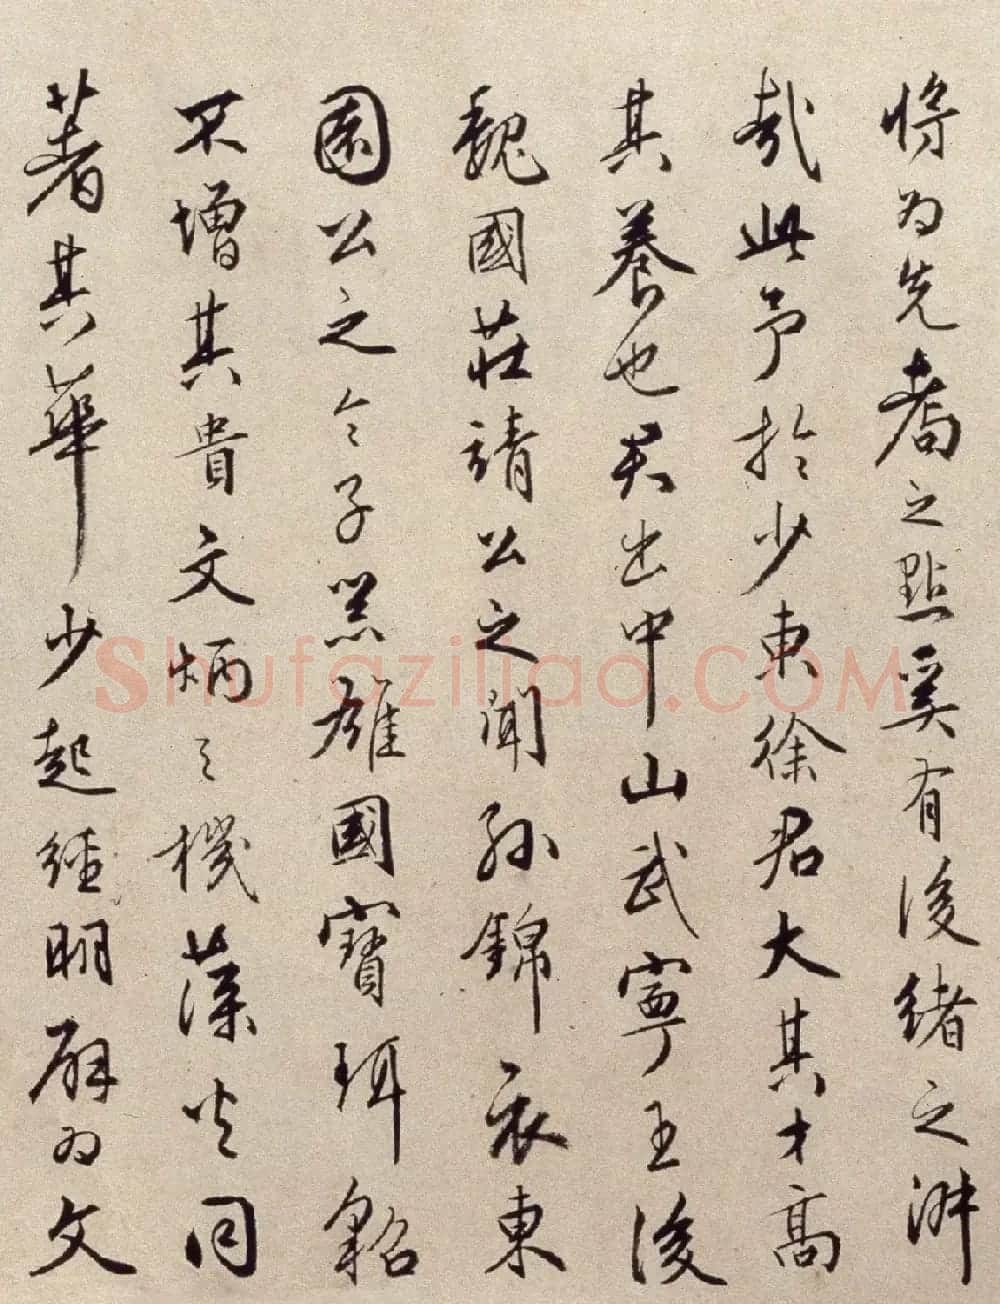 将为先耆之點奚有後緒之洪
哉此予於少東徐君大其才高
其養也君出中山武寧王後
魏國莊靖公之聞孫錦衣東
園公之令子黑雄國寶珥貂
不增其貴文炳之機藻火同
著其華少起經明薜为文
Shufaziliao.COM